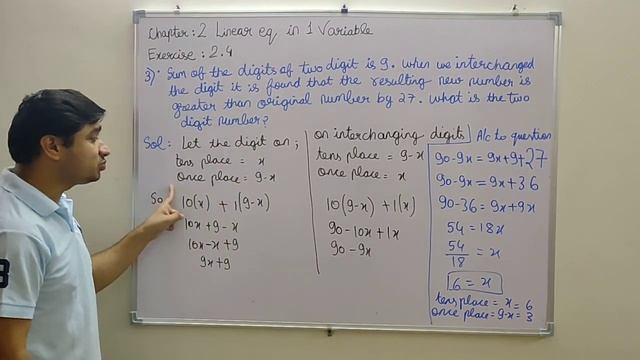 Chapter: 2 Linear eq in 1 Variable
Exercise: 2.4
3): Sum of the digits of two digit is 9. when we interchanged
the digit it is found that the resulting new number is
greater than original number by 27. what is the two
digit number?
Sol: Let the digit on;
tens place = x
once place = 9-x
So 10(x) + 1(9-x)
10x + 9 - x
10x - x + 9
9x + 9
on interchanging digits
tens place = 9-x
once place = x
10(9-x) + 1(x)
90 - 10x + 1x
90 - 9x
A/c to question
90 - 9x = 9x + 9 + 27
90 - 9x = 9x + 36
90 - 36 = 9x + 9x
54 = 18x
54/18 = x
6 = x
tens place = x = 6
once place = 9-x = 3